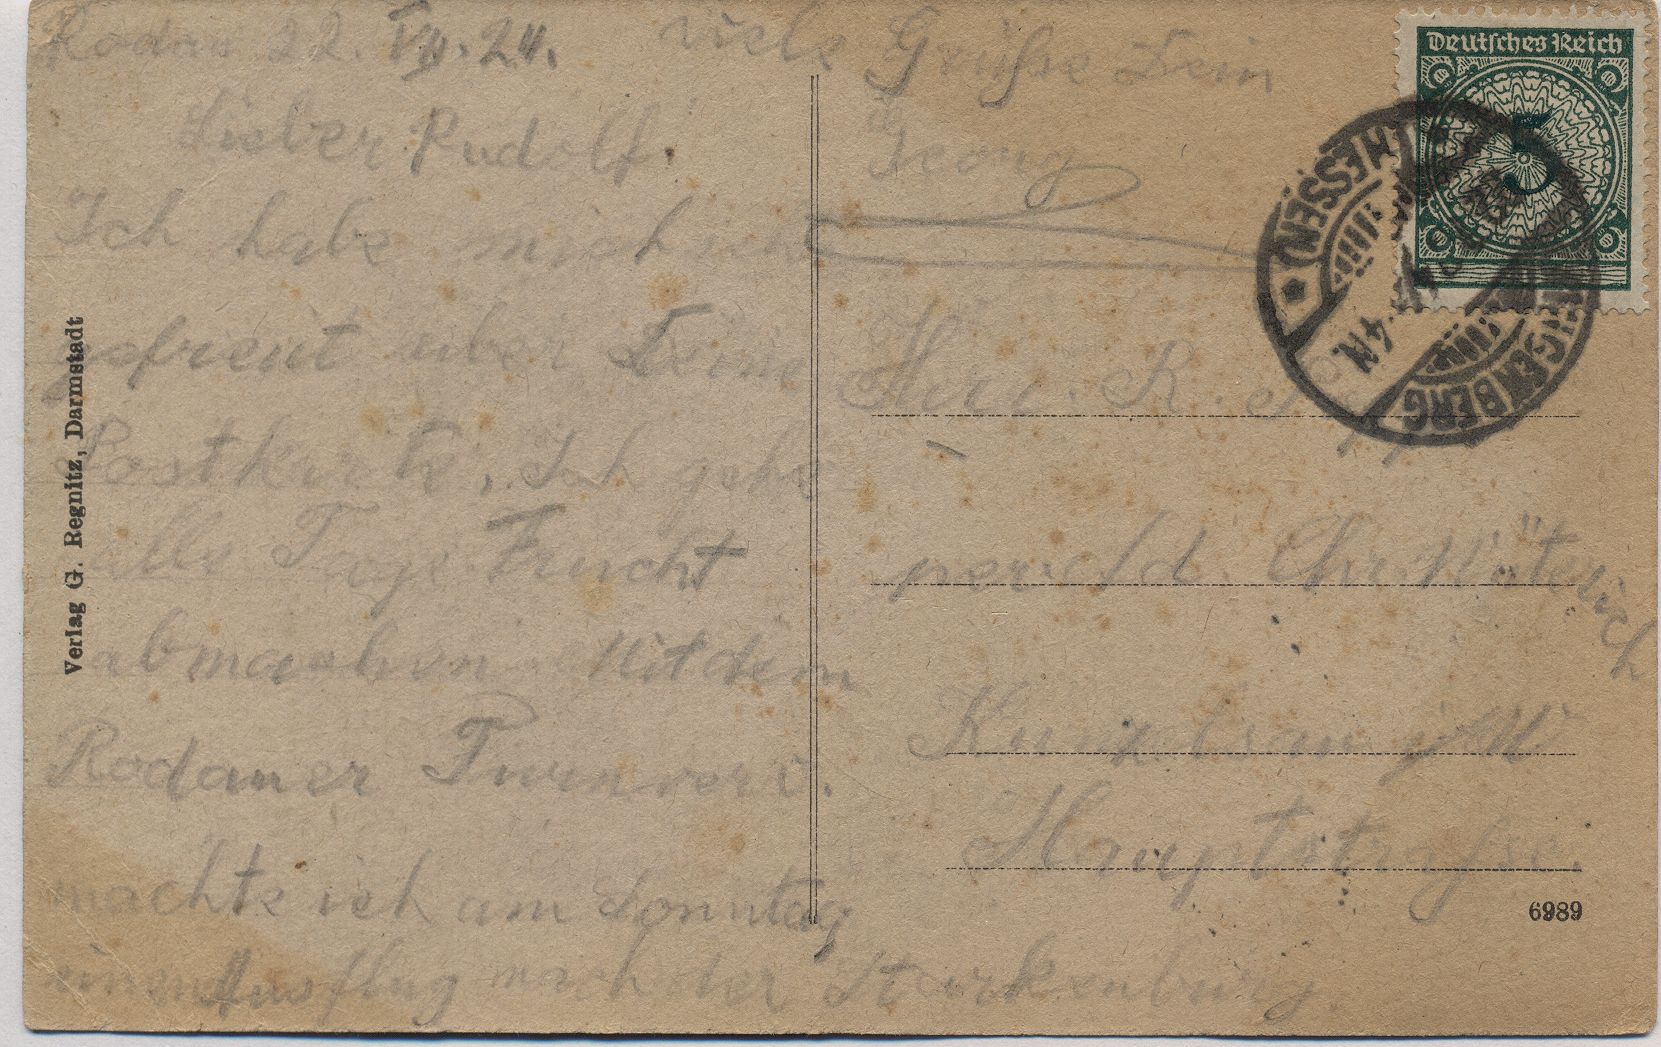 Rodau 22. VII. 24.
Lieber Rudolf!
Ich habe mich
gefreut über Deine
Postkarte. Ich gehe
alle Tage Frucht
abmachen. Mit dem
Rodauer Turnver
machte ich am Sonntag
einen Ausflug nach der Starkenburg
viele Grüße Dein
Georg
Verlag G. Regnitz, Darmstadt
Deutsches Reich
5
ZWINGENBERG
(HESSEN)
4-5 N.
R.
per. Ad. Chr.
Künzelsau
Hauptstraße.
6989